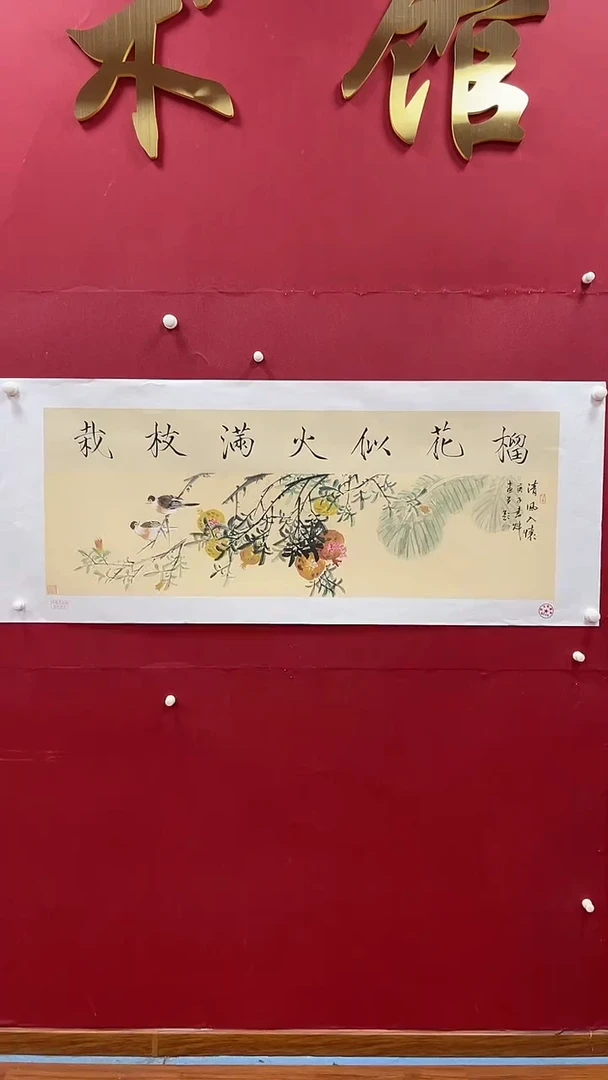 术馆
榴花似火滿枝栽
清风入懷